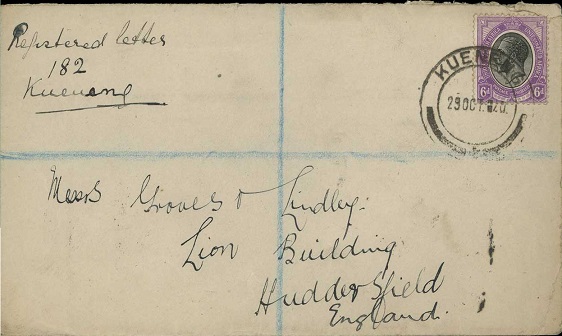 Registered letter
182
Kueneng
KUENENG
29 OCT
6d 6d
Messrs Groves & Lindley.
Lion Building
Huddersfield
England.